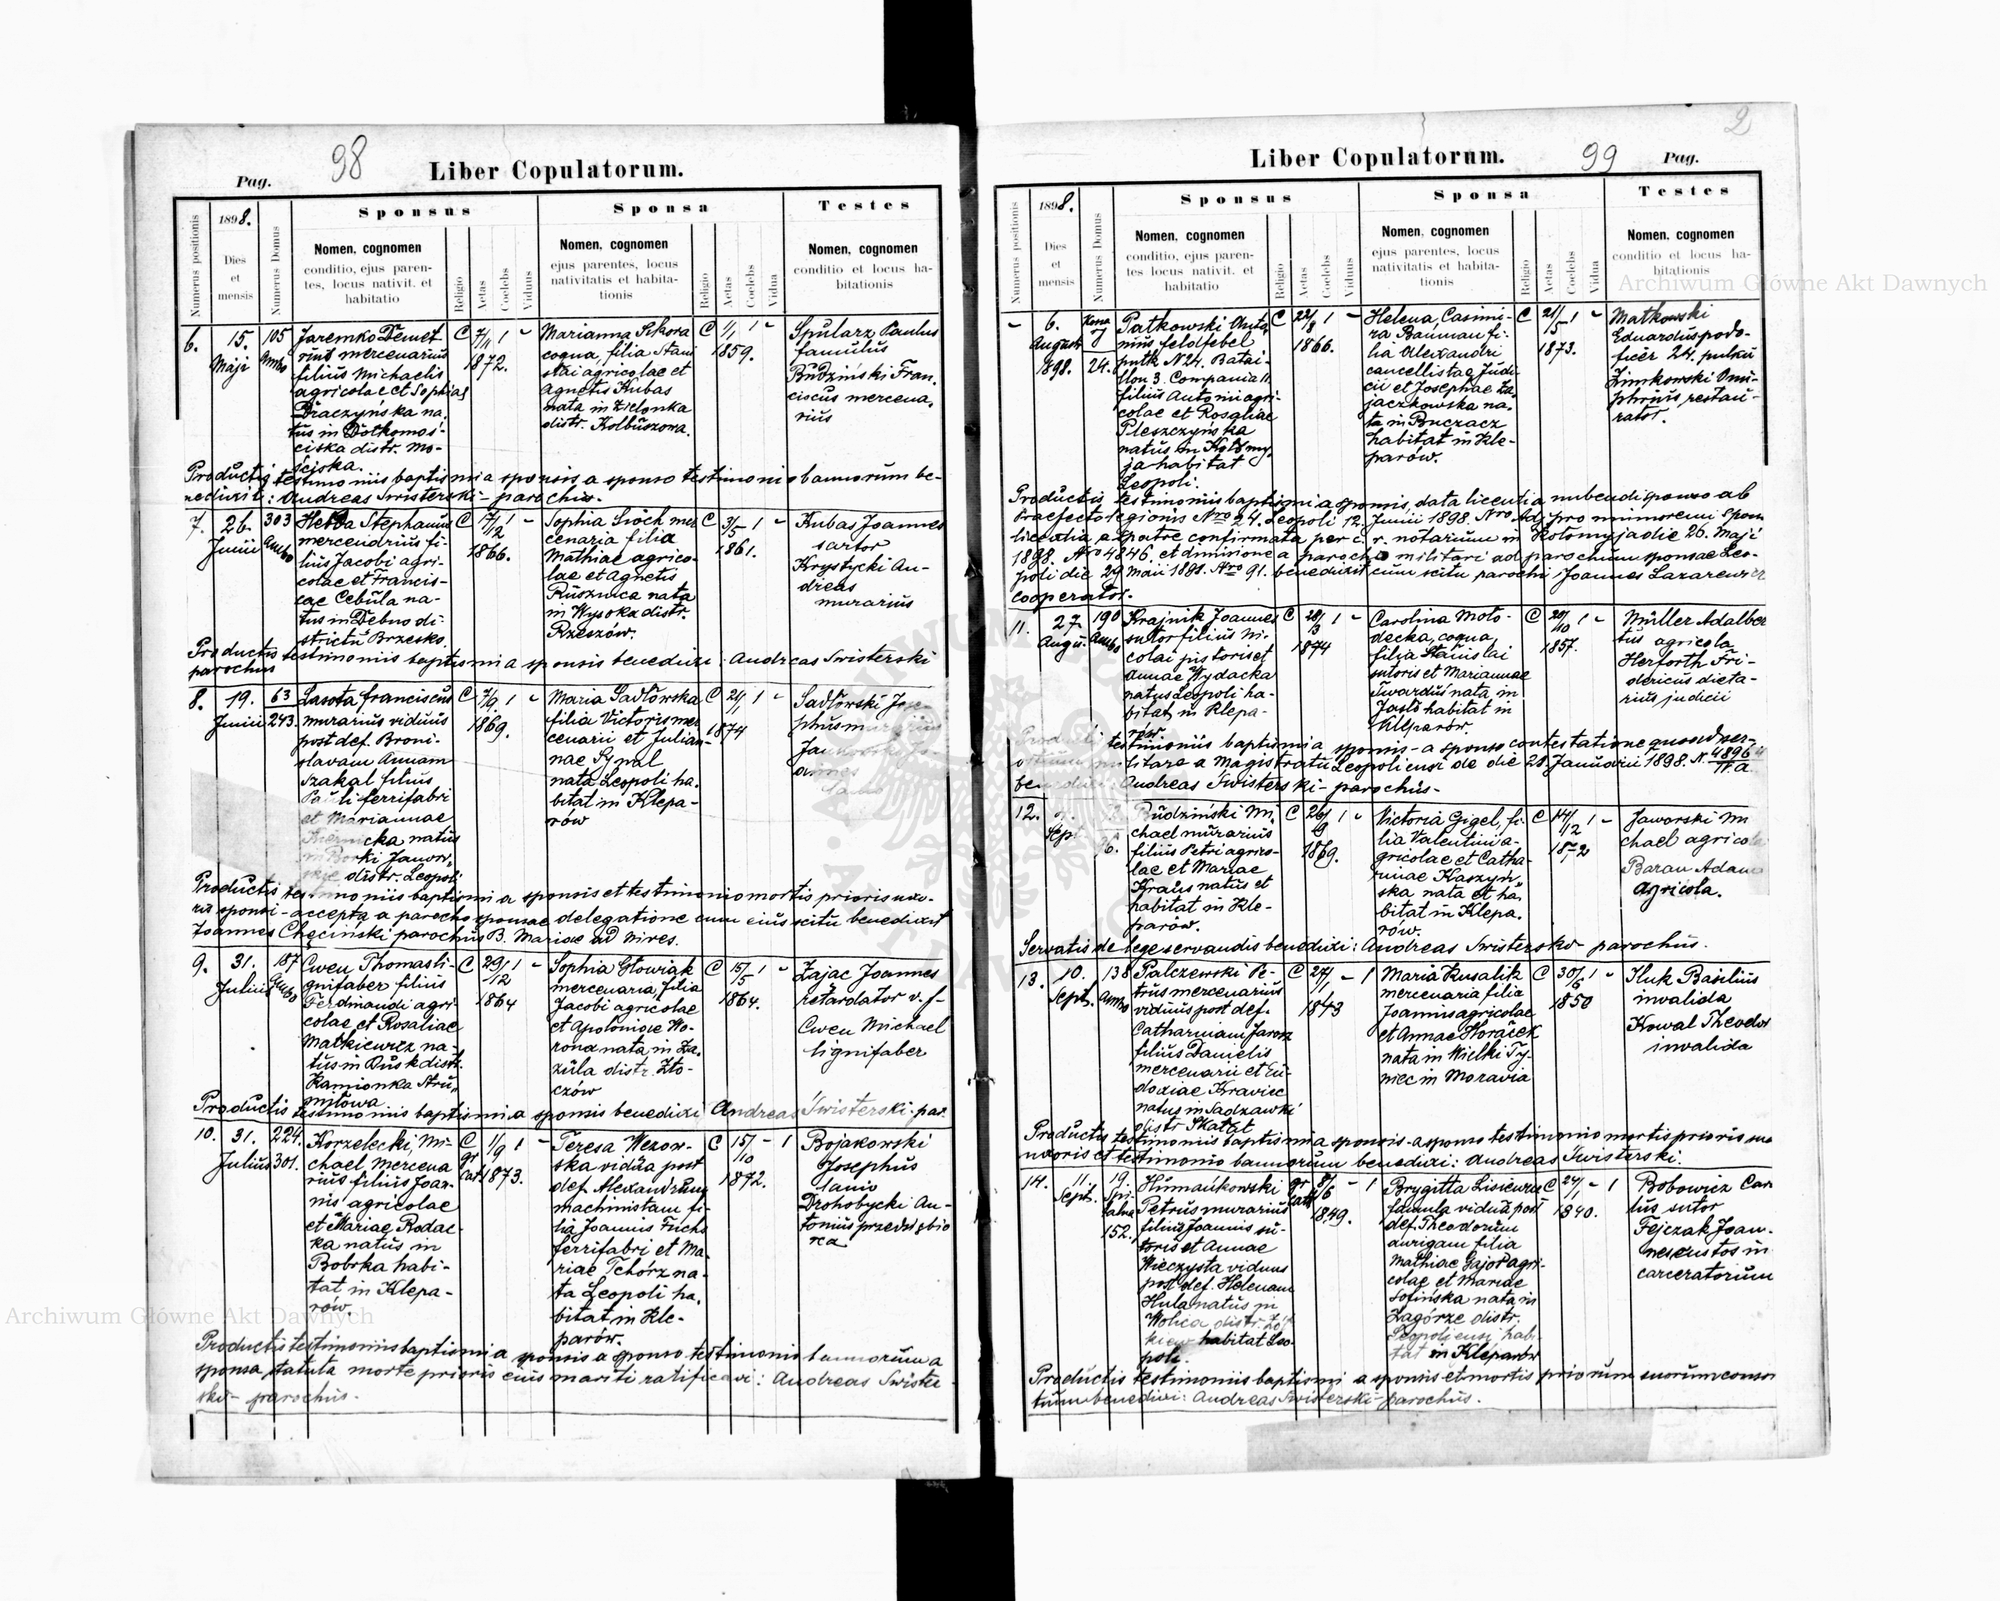 98
Pag.
Liber Copulatorum.
Numerus positionis
1898.
Dies
et
mensis
Numerus Domus
Sponsus
Nomen, cognomen
conditio, ejus paren-
tes, locus nativit. et
habitatio
Religio
Aetas
Coelebs
Viduus
Sponsa
Nomen, cognomen
ejus parentes, locus
nativitatis et habita-
tionis
Religio
Aetas
Coelebs
Vidua
Testes
Nomen, cognomen
conditio et locus ha-
bitationis
6.
15.
Maji
105
Ambo
Jaremko Demet
rius mercenarius
filius Michaelis
agricolae et Sophiae
Draczynska na-
tus in
ciska distr. Mo-
ściska.
C
7/11
1872.
1
-
Marianna Sikora
coqua, filia Stani
slai agricolae et
Agnetis Kubas
nata in Zielonka
distr. Kolbuszowa.
C
1/1
1859.
1
-
Spularz Paulus
famulus
Budziński Fran-
ciscus mercena-
rius
Productis testimoniis baptismi a sponsis a sponso testimonio bannorum be-
nedixit: Andreas Swisterski - parochus.
7.
26.
Junii
303
Ambo
Stephanus
mercenarius fi-
lius Jacobi agri-
colae et Francis-
cae Cebula na-
tus in Dębno di-
strictu Brzesko.
C
7/12
1866.
1
-
Sophia Groch mer
cenaria filia
Mathiae agrico-
lae et Agnetis
nata
in Wysoka distr.
Rzeszów.
C
3/5
1861.
1
-
Kubas Joannes
sartor
Krystycki An-
dreas
murarius
Productis testimoniis baptismi a sponsis benedixi: Andreas Swisterski
parochus
8.
19.
Junii
63
243.
Lasota Franciscus
murarius viduus
post def. Broni-
slavam Annam
Szakal filius
Pauli ferrifabri
et Mariannae
natus
in Borki Janow-
skie distr. Leopoli
C
7/9
1869.
1
-
Maria Sadłowska
filia Victoris mer
cenarii et Julian-
nae Gypal
nata Leopoli ha-
bitat in Klepa-
rów
C
21/1
1874
1
-
Sadłowski Jose-
phus murarius
Jankowski Jo-
annes
Productis testimoniis baptismi a sponsis et testimonio mortis prioris uxo-
ris sponsi - accepta a parocho sponsae delegatione cum eius scitu benedixit
Joannes Chęciński parochus B. Mariae ad Nives.
9.
31.
Julius
187
Ambo
Cwen Thomas li-
gnifaber filius
Ferdinandi agri-
colae et Rosaliae
Matkiewicz na-
tus in Busk distr.
Kamionka Stru-
miłowa
C
29/12
1864
1
-
Sophia Głowiak
mercenaria, filia
Jacobi agricolae
et Apoloniae Wo-
rona nata in Za-
zula distr. Zło-
czów
C
15/5
1864.
1
-
Zając Joannes
retardator v. f-
Cwen Michael
lignifaber
Productis testimoniis baptismi a sponsis benedixi Andreas Swisterski. par.
10.
31.
Julius
224.
301.
Korzelecki, Mi-
chael mercena
rius filius Joan-
nis agricolae
et Mariae Rodac-
ka natus in
Bobrka habi-
tat in Klepa-
rów.
C
gr
cat
1/9
1873.
1
-
Teresa Wezow-
ska vidua post
def. Alexandrum
machinistam fi-
lia Joannis Fuchs
ferrifabri et Ma-
riae Tchórz na-
ta Leopoli ha-
bitat in Kle-
parów.
C
15/10
1872.
-
1
Bojakowski
Josephus
lanio
Drohobycki An-
tonius przedsiębio
rca
Productis testimoniis baptismi a sponsis a sponso testimonio bannorum a
sponsa statuta morte prioris eius mariti ratificavi: Andreas Swister-
ski - parochus.
2
Liber Copulatorum.
99
Pag.
Numerus positionis
1898.
Dies
et
mensis
Numerus Domus
Sponsus
Nomen, cognomen
conditio, ejus paren-
tes locus nativit. et
habitatio
Religio
Aetas
Coelebs
Viduus
Sponsa
Nomen, cognomen
ejus parentes, locus
nativitatis et habita-
tionis
Religio
Aetas
Coelebs
Vidua
Testes
Nomen, cognomen
conditio et locus ha-
bitationis
-
6.
August
1898.
24.
Patkowski Anto-
nius feldfebel
pułk N 24. Batai-
llon 3. Compania 11.
filius Antonii agri-
colae et Rosaliae
Pleszczyńska
natus in Kołomy-
ja habitat
Leopoli.
C
22/8
1866.
1
-
Helena, Casimi-
ra Bauman fi-
lia Alexandri
cancellistae Judi-
cii et Josephae Za-
jączkowska na-
ta in Buczacz
habitat in Kle-
parów.
C
21/5
1873.
1
-
Matkowski
Eduardus podo-
ficer 24. pułku
Zimkowski Onu-
phrius restau-
rator.
Productis testimoniis baptismi a sponsis, data licentia nubendi sponso ab
Praefecto legionis Nro 24. Leopoli 12. Junii 1898. Nro Adj. pro minorenni sponsa
licentia a patre confirmata per c. r. notarium in Kołomyja die 26. Maji
1898. Nro 4846. et dimissione a parocho militari ad parochum sponsae Leo-
poli die 29 Maii 1898. Nro 91. benedixit cum scitu parochi Joannes Lazarewicz
cooperator.
11.
27.
Augu.
190
Ambo
Krajnik Joannes
sutor filius Ni-
colai pistoris et
Annae Wydacka
natus Leopoli ha-
bitat in Klepa-
rów.
C
28/3
1874
1
-
Carolina Moto-
decka, coqua,
filia Stanislai
sutoris et Mariannae
Twardus nata in
Jasło habitat in
Kleparów.
C
20/10
1857.
1
-
Müller Adalber
tus agricola
Herforth Fri-
dericus dieta-
rius judicii
Productis testimoniis baptismi a sponsis - a sponso contestatione quoad ser-
vitium militare a Magistratu Leopoliensi de die 28. Januarii 1898. N. 4896
benedixi: Andreas Swisterski - parochus -
12.
Sept.
76.
Budziński Mi-
chael murarius
filius Petri agrico-
lae et Mariae
Kraus natus et
habitat in Kle-
parów.
C
26/9
1869.
1
-
Victoria Gigel, fi-
lia Valentini a-
gricolae et Catha-
rinae Kaszyń-
ska nata et ha-
bitat in Klepa-
rów.
C
14/12
1872
1
-
Jaworski Mi
chael agricola
Baran Adam
agricola.
Servatis de lege servandis benedixi: Andreas Swisterski - parochus.
13.
10.
Sept.
138
Ambo
Palczewski Pe-
trus mercenarius
viduus post def.
Catharinam Jarosz
filius Danielis
mercenarii et Eu-
doxiae Krawiec
natus in Sadzawki
distr. Skałat
C
27/1
1843
-
1
Maria Kusalik
mercenaria filia
Joannis agricolae
et Annae Horáček
nata in Wielki Ty-
niec in Moravia
C
30/6
1850
1
-
Kluk Basilius
invalida
Kowal Theodor
invalida
Productis testimoniis baptismi a sponsis - a sponso testimonio mortis prioris suae
uxoris et testimonio bannorum benedixi: Andreas Swisterski.
14.
11.
Sept.
19.
Szpi-
talna
152.
Humankowski
Petrus murarius
filius Joannis su-
toris et Annae
Wieczysta viduus
post def. Helenam
Hula natus in
Wolica distr. Żół-
kiew habitat Leo-
poli.
gr
cath
8/6
1849.
-
1
Brygitta Lisiewicz
famula vidua post
def. Theodorum
aurigam filia
Mathiae Gajot agri-
colae et Mariae
Sofińska nata in
Zagórze distr.
Leopoliensi habi-
tat in Kleparów
C
24/1
1840.
-
1
Bobowicz Caro
lus sutor
Fejczak Joan-
nes custos in-
carceratorum
Productis testimoniis baptismi a sponsis et mortis priorum suorum consor
tum benedixi: Andreas Swisterski - parochus.
Archiwum Główne Akt Dawnych
Archiwum Główne Akt Dawnych